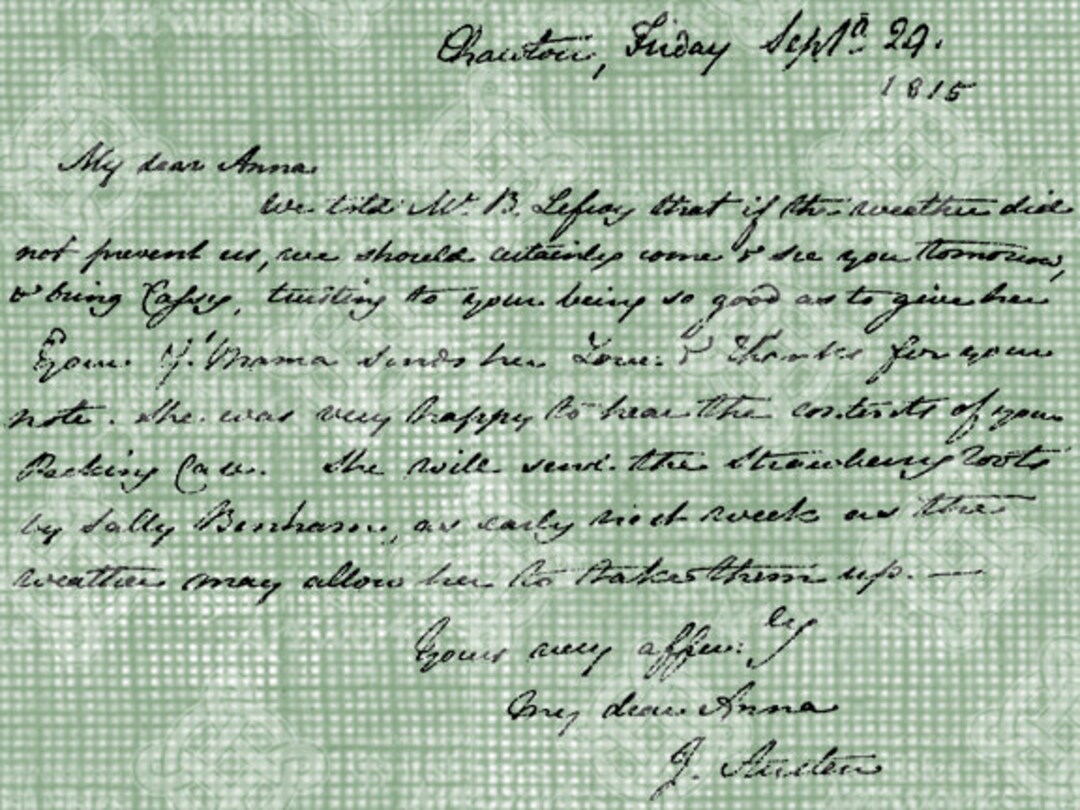 Chawton, Friday Sept.r 29.
1815
My dear Anna
We told Mr. B. Lefroy that if the weather did
not prevent us, we should certainly come & see you tomorrow,
& bring Cassy, trusting to your being so good as to give her
Your G. Mama sends her Love & Thanks for your
note. She was very happy to hear the contents of your
Packing Case. She will send the Strawberry roots
by Sally Benham, as early next week as the
weather may allow her to take them up. —
Yours very affec:ly
My dear Anna
J. Austen